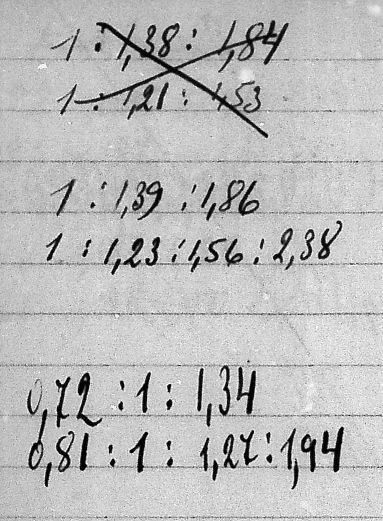 1 : 1,38 : 1,84
1 : 1,21 : 1,53
1 : 1,39 : 1,86
1 : 1,23 : 1,56 : 2,38
0,72 : 1 : 1,34
0,81 : 1 : 1,27 : 1,94